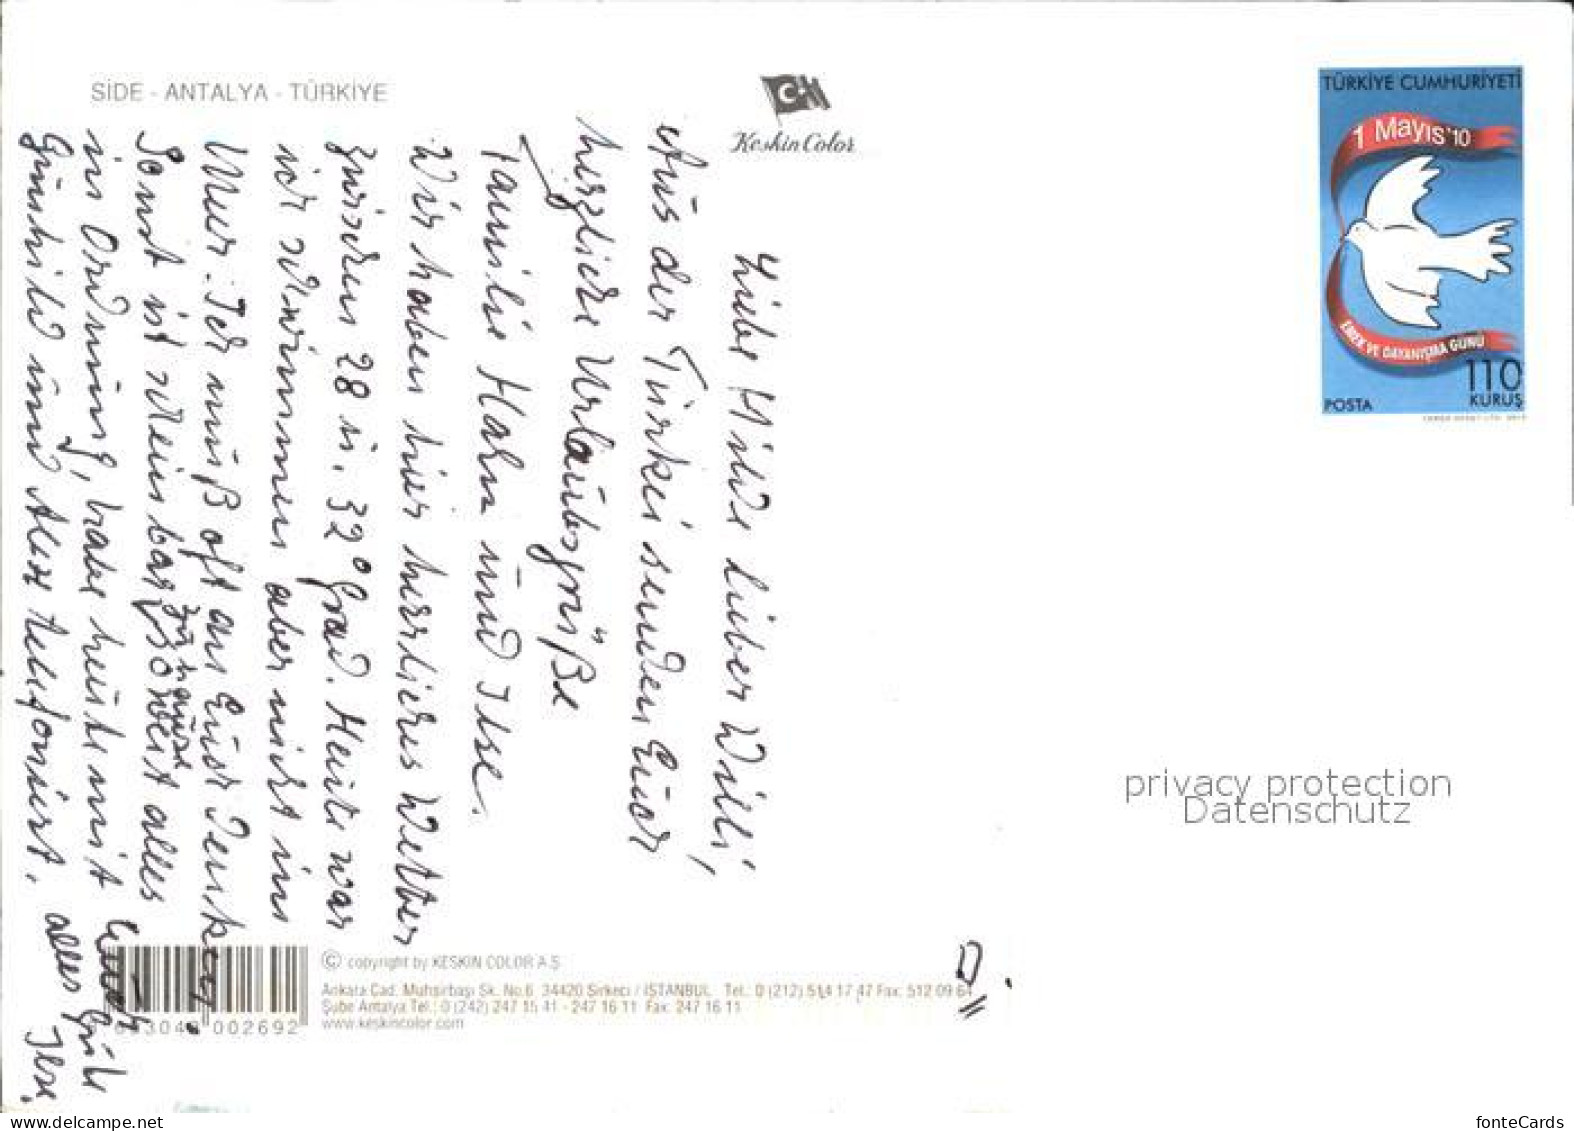 SİDE - ANTALYA - TÜRKİYE
Keskin Color
TÜRKİYE CUMHURİYETİ
1 Mayıs'10
EMEK VE DAYANIŞMA GÜNÜ
110
KURUŞ
POSTA
Liebe Hilde lieber Willi,
Aus der Türkei senden Euch
herzliche Urlaubsgrüße
Familie Hahn und Ilse.
Wir haben hier herrliches Wetter
zwischen 28 u. 32° Grad. Heute war
ich schwimmen aber nicht im
Meer. Ich muß oft an Euch denken.
Sonst ist scheinbar zuhause soweit alles
in Ordnung, habe heute mit
Günhild und Alex telefoniert.
alles Gute
Ilse
privacy protection
Datenschutz
© copyright by KESKIN COLOR A.Ş.
Ankara Cad. Muhsirbaşı Sk. No.6 34420 Sirkeci / ISTANBUL Tel.: 0 (212) 514 17 47 Fax: 512 09 64
Şube Antalya Tel.: 0 (242) 247 15 41 - 247 16 11 Fax: 247 16 11
www.keskincolor.com
002692
www.delcampe.net
fonteCards